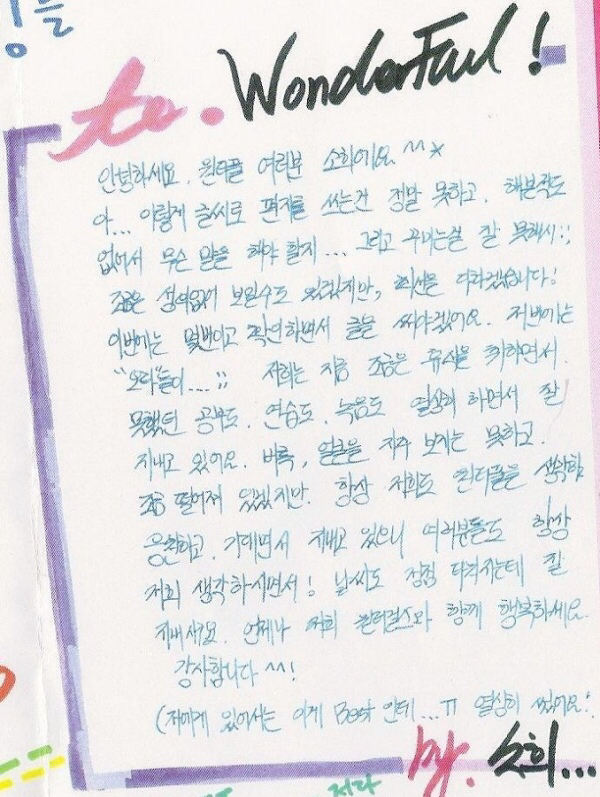 to. WonderFul!
안녕하세요. 원더풀 여러분 소희에요 ^^*
아... 이렇게 글씨로 편지를 쓰는건 정말 못하고. 해본적도
없어서 무슨 말을 해야 할지... 그리고 꾸미는걸 잘 못해서;;
조금은 성의없게 보일수도 있겠지만, 최선을 다하겠습니다!
이번에는 몇번이고 확인하면서 글을 써야겠어요. 저번에는
"오타"들이....;; 저희는 지금 조금은 휴식을 취하면서.
못했던 공부도. 연습도. 녹음도 열심히 하면서 잘
지내고 있어요. 비록, 얼굴을 자주 보지는 못하고.
조금 떨어져 있겠지만. 항상 저희도 원더풀을 생각하
응원하고. 기대면서 지내고 있으니 여러분들도 항상
저희 생각하시면서! 날씨도 점점 더워지는데 잘
지내세요. 언제나 저희 원더걸스와 함께 행복하세요.
감사합니다 ^^!
(저에게 있어서는 이게 Best 인데...ㅠ 열심히 썼어요.
by. 소희...